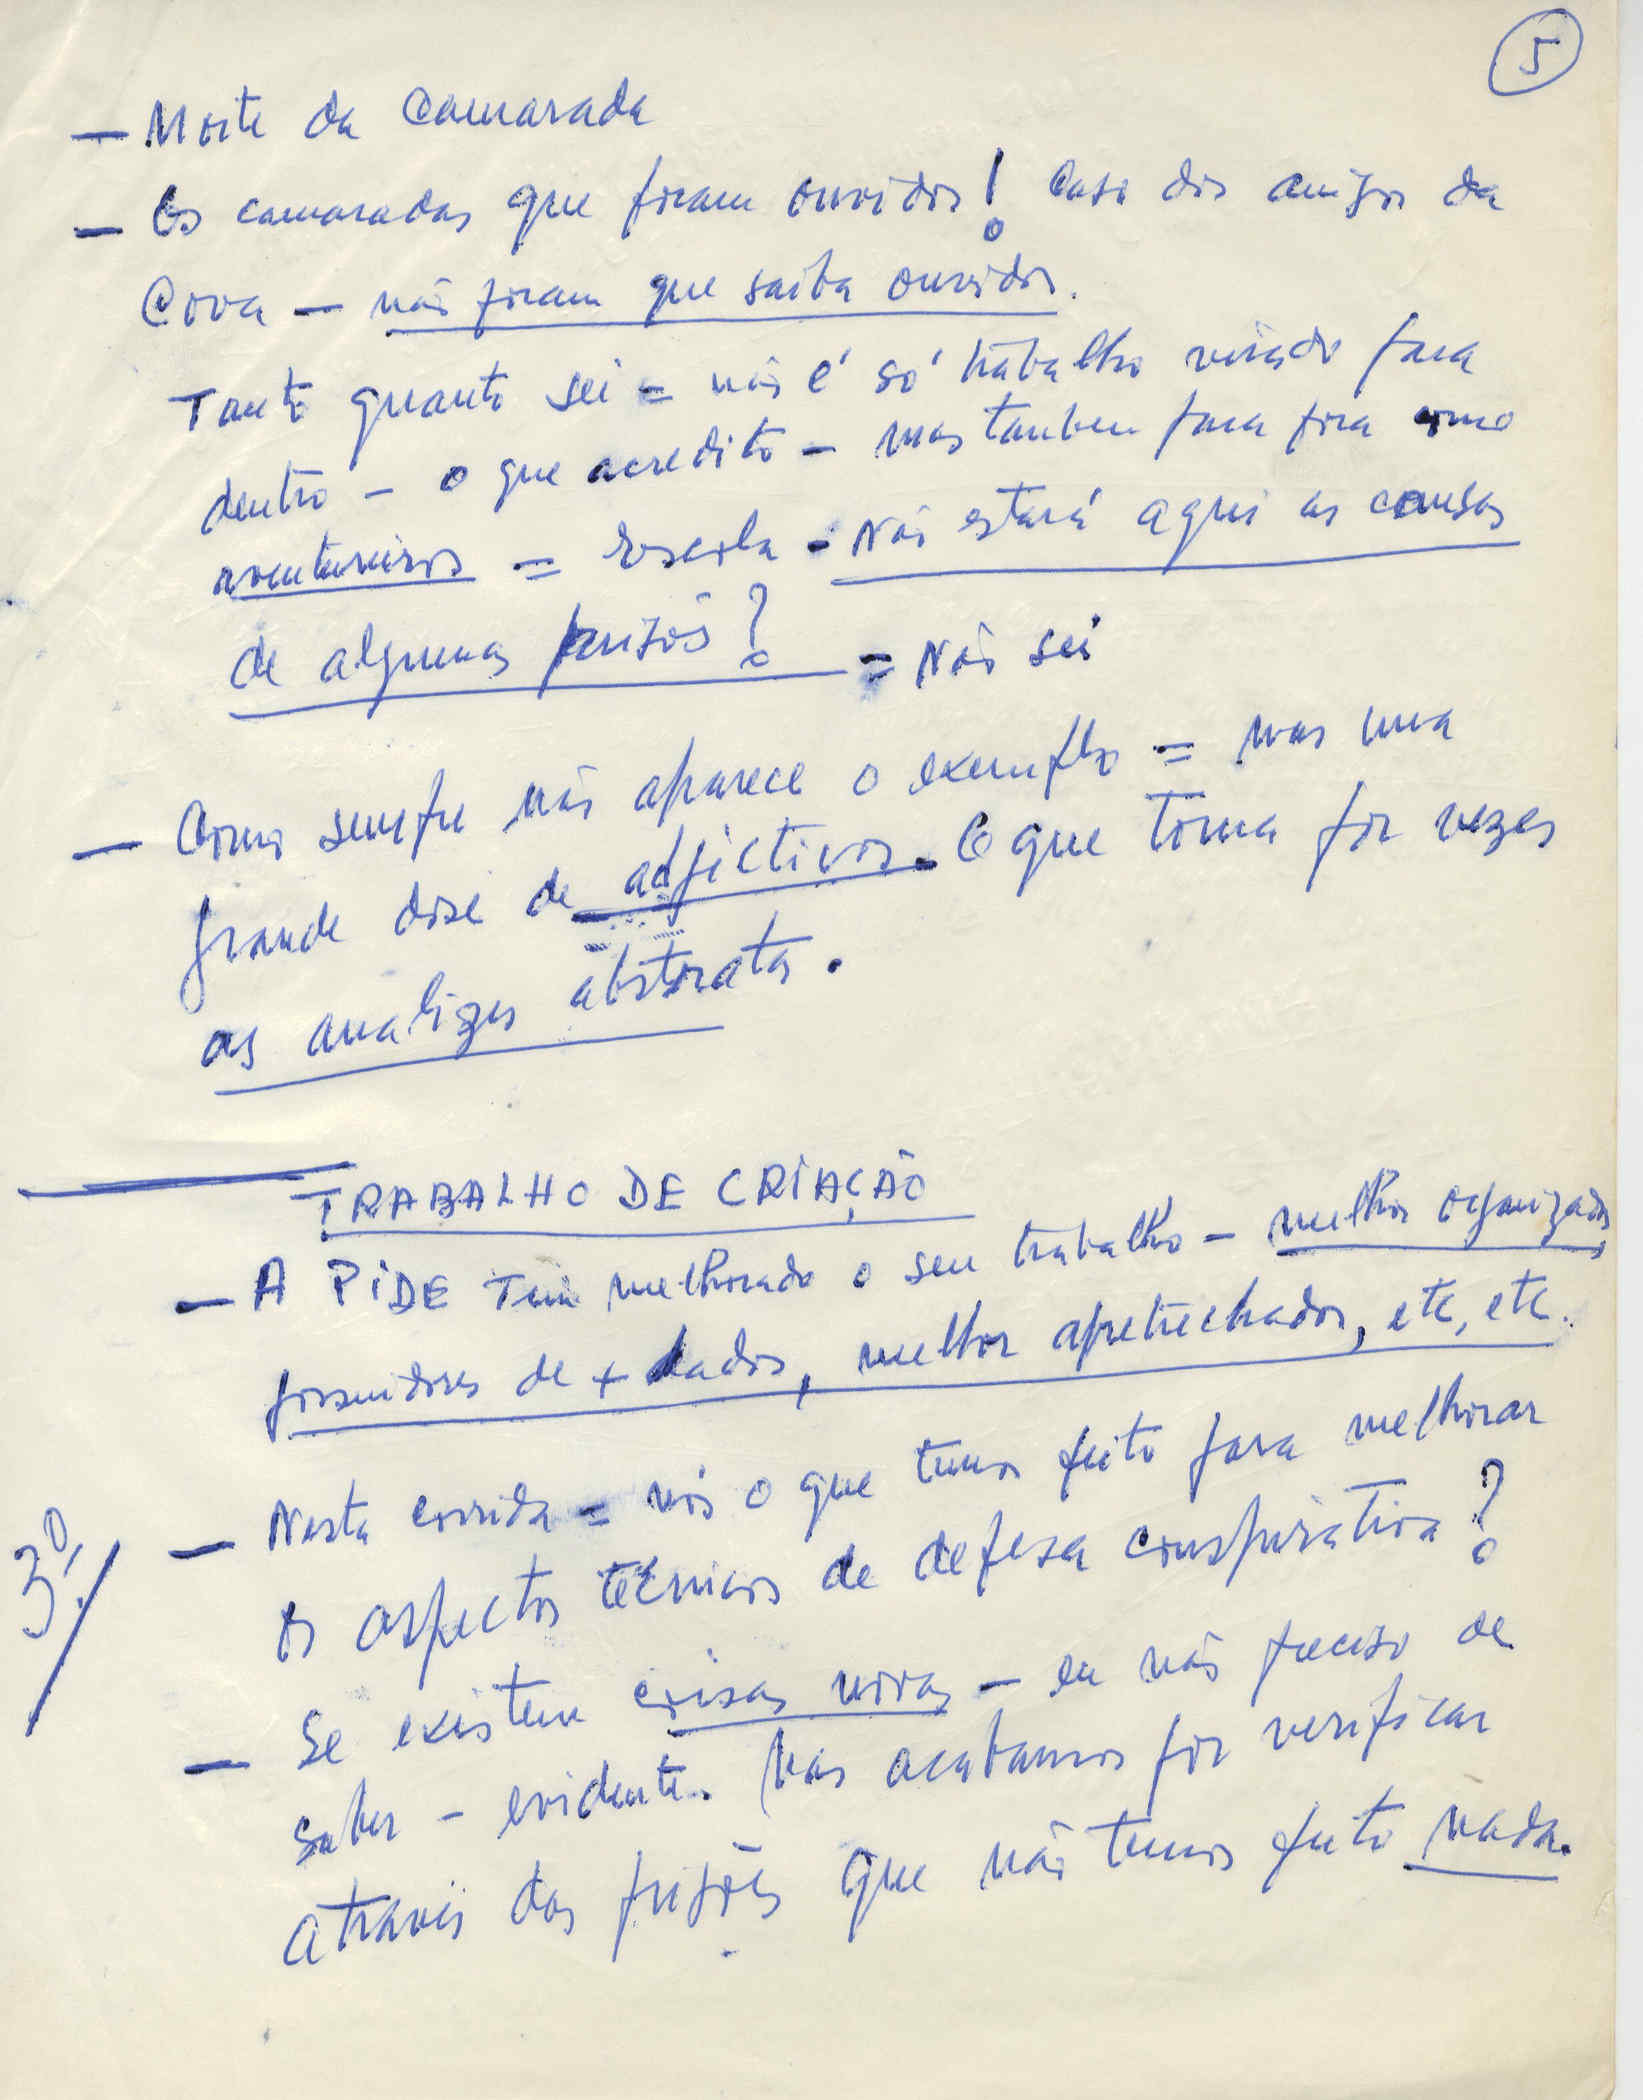 5
— Morte da Camarada
— Os camaradas que foram ouvidos! Caso dos amigos da
Cova — não foram que saiba ouvidos.
Tanto quanto sei = não é só trabalho virado para
dentro — o que acredito — mas tambem para fora como
aventureiros = Escola - Não estará aqui as causas
de algumas prisões? = Não sei
— Como sempre não aparece o exemplo = mas uma
grande dose de adjectivos. O que torna por vezes
as analizes abstratas.
TRABALHO DE CRIAÇÃO
— A PIDE Tem melhorado o seu trabalho — melhor organizados
possuidores de + dados, melhor apetrechados, etc, etc.
— Nesta corrida = nós o que temos feito para melhorar
3º/
os aspectos técnicos de defesa conspirativa?
— Se existem coisas novas — eu não preciso de
saber — evidente. Mas acabamos por verificar
através das prisões que não temos feito nada.